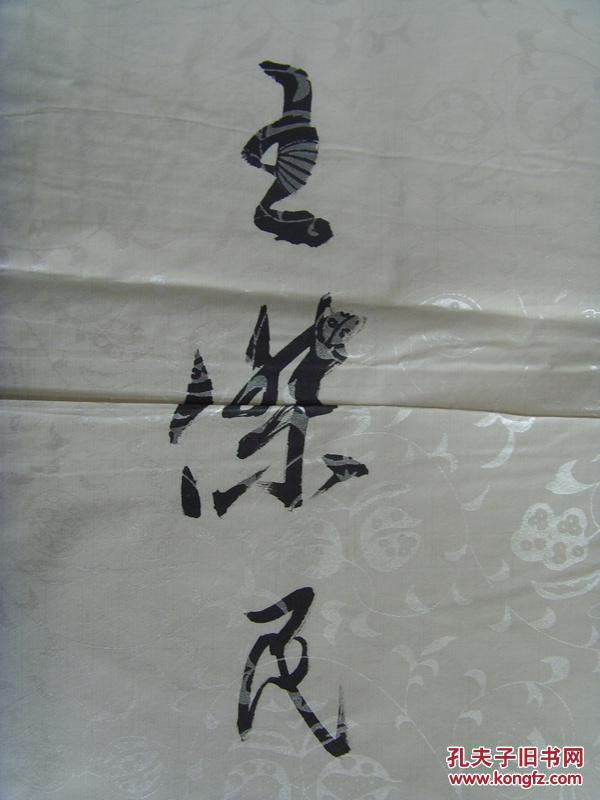 王
傑
民
孔夫子旧书网
www.kongfz.com